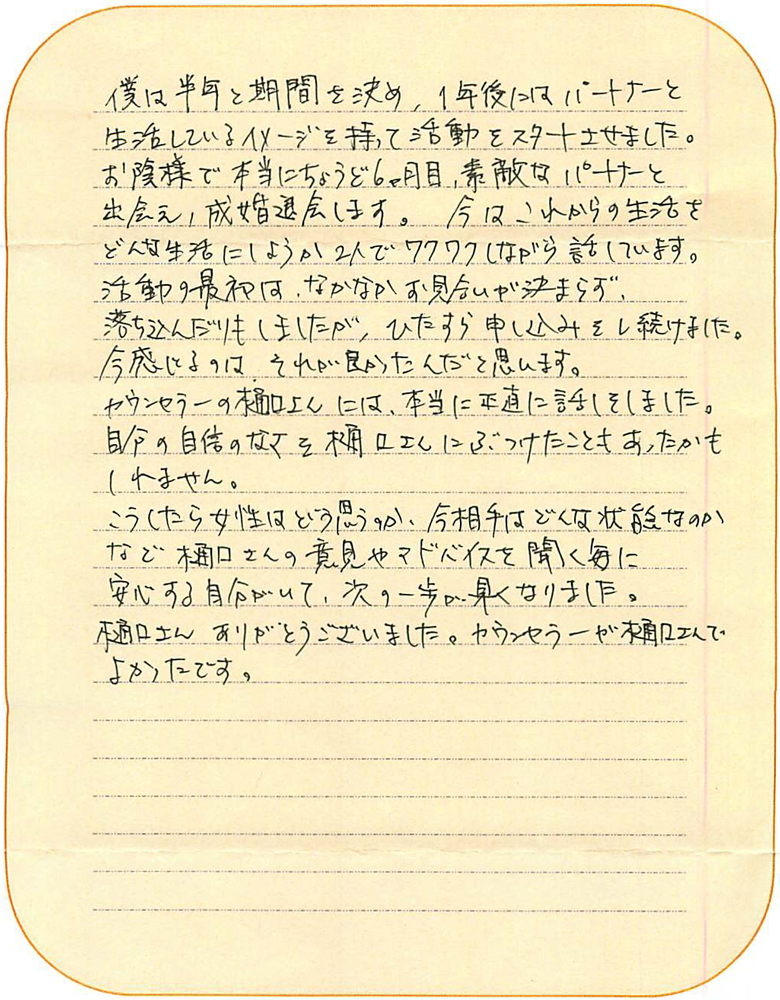 僕は半年と期間を決め、1年後にはパートナーと
生活しているイメージを持って活動をスタートさせました。
お陰様で本当にちょうど6ヶ月目、素敵なパートナーと
出会え、成婚退会します。 今はこれからの生活を
どんな生活にしようか2人でワクワクしながら話しています。
活動の最初は、なかなかお見合いが決まらず、
落ち込んだりもしましたが、ひたすら申し込みをし続けました。
今感じるのは、それが良かったんだと思います。
カウンセラーの樋口さんには、本当に正直に話しをしました。
自分の自信のなさを樋口さんにぶつけたこともあったかも
しれません。
こうしたら女性はどう思うのか、今相手はどんな状態なのか
など樋口さんの意見やアドバイスを聞く毎に
安心する自分がいて、次の一歩が早くなりました。
樋口さん ありがとうございました。カウンセラーが樋口さんで
よかったです。